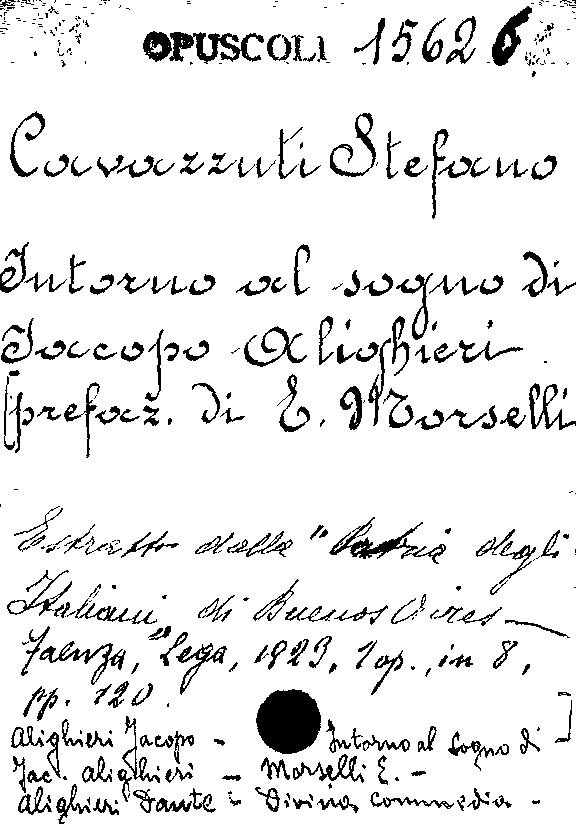 OPUSCOLI 15626
Cavazzuti Stefano
Intorno al sogno di
Jacopo Alighieri
[prefaz. di E. Morselli
Estratto dalla "Patria degli
Italiani" di Buenos Aires —
Faenza, Lega, 1923, 1 op., in 8,
pp. 120.
Alighieri Jacopo - Intorno al sogno di ]
Jac. Alighieri - Morselli E. -
Alighieri Dante - Divina commedia -